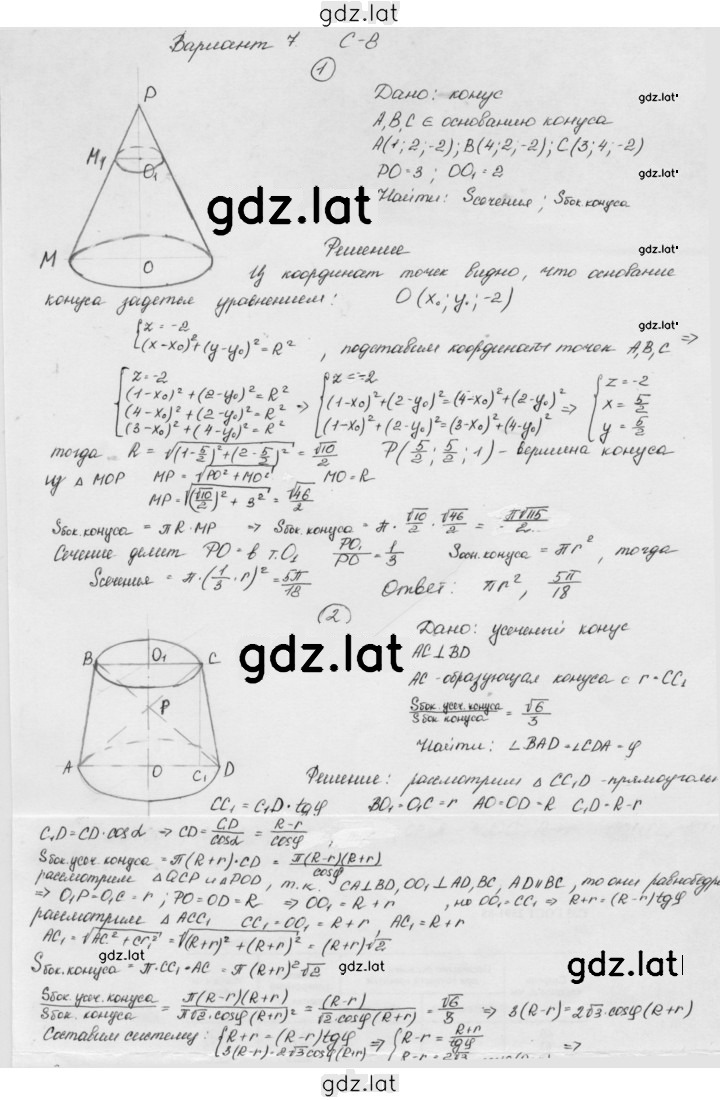 gdz.lat
Вариант 7 С-8
1
Дано: конус
gdz.lat
A,B,C ∈ основанию конуса
gdz.lat
A(1;2;-2); B(4;2;-2); C(3;4;-2)
PO=3; OO₁=2
gdz.lat
Найти: Sсечения; Sбок.конуса
P
M₁
O₁
M
O
gdz.lat
Решение
gdz.lat
Из координат точек видно, что основание
конуса задется уравнением: O(x₀; y₀; -2)
{z=-2
(x-x₀)²+(y-y₀)²=R², подставим координаты точек A,B,C ⇒
gdz.lat
{z=-2
(1-x₀)²+(2-y₀)²=R²
(4-x₀)²+(2-y₀)²=R²
(3-x₀)²+(4-y₀)²=R²
⇒ {z=-2
(1-x₀)²+(2-y₀)²=(4-x₀)²+(2-y₀)²
(1-x₀)²+(2-y₀)²=(3-x₀)²+(4-y₀)²
⇒ {z=-2
x=5/2
y=5/2
тогда R=√((1-5/2)²+(2-5/2)²)=√10/2 P(5/2; 5/2; 1) - вершина конуса
из △MOP MP=√(PO²+MO²) MO=R
MP=√((√10/2)²+3²)=√46/2
Sбок.конуса=πR·MP ⇒ Sбок.конуса=π·√10/2·√46/2=π√115/2
Сечение делит PO в т.O₁ PO₁/PO=1/3 Sосн.конуса=πr², тогда
Sсечения=π·(1/3·r)²=5π/18 Ответ: πr², 5π/18
2
gdz.lat
Дано: усеченый конус
AC⊥BD
AC-образующая конуса с r=CC₁
Sбок.усеч.конуса/Sбок конуса=√6/3
Найти: ∠BAD=∠CDA=φ
B
O₁
C
P
A
O
C₁
D
Решение: рассмотрим △CC₁D-прямоуголь
CC₁=C₁D·tgφ BO₁=O₁C=r AO=OD=R C₁D=R-r
C₁D=CD·cosα ⇒ CD=C₁D/cosα=R-r/cosφ;
Sбок.усеч.конуса=π(R+r)·CD=π(R-r)(R+r)/cosφ
рассмотрим △O₁CP и △POD, т.к. CA⊥BD, OO₁⊥AD,BC, AD∥BC, то они равнобедре
⇒ O₁P=O₁C=r; PO=OD=R ⇒ OO₁=R+r, но OO₁=CC₁ ⇒ R+r=(R-r)tgφ
рассмотрим △ACC₁ CC₁=OO₁=R+r, AC₁=R+r
AC₁=√(AC²+CC₁²)=√((R+r)²+(R+r)²)=(R+r)√2
Sбок.конуса=π·CC₁·AC=π(R+r)²√2
gdz.lat
gdz.lat
Sбок.усеч.конуса/Sбок.конуса=π(R-r)(R+r)/π√2·cosφ(R+r)²=(R-r)/√2·cosφ(R+r)=√6/3 ⇒ 3(R-r)=2√3·cosφ(R+r)
Составим систему: {R+r=(R-r)tgφ
3(R-r)=2√3cosφ(R+r)
⇒ {R-r=R+r/tgφ
⇒
gdz.lat